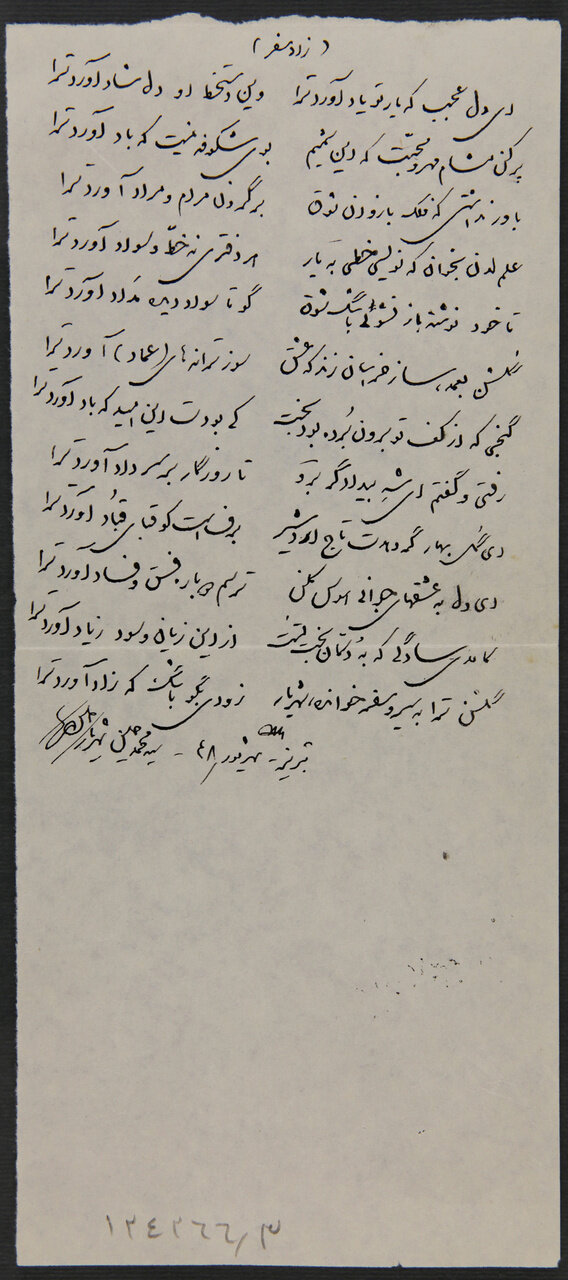 ( زاد سفر )
ای دل عجب که یار تو یاد آورد ترا وین دستخط او دل شاد آورد ترا
پر کن مشام مهر و محبّت که این شمیم بوی شکوفه نیست که باد آورد ترا
باور نداشتی که فلک باژگون شود برگردد این مرام و مراد آورد ترا
علم لدن بخوان که نویسی خطی به یار هر دفتری نه خطّ و سواد آورد ترا
تا خود نوشته باز گو تا سواد دیده مداد آورد ترا
گلشن بعهد، ساز خراسان زند که عشق سوز ترانه های (عماد) آورد ترا
گنجی که از کف تو برون بُرده بود بخت کی بودت این امید که باد آورد ترا
رفتی و گفتم ای شهِ بیدادگر بَرَو تا روزگار بر سر داد آورد ترا
ای گل بهار گر دهدت تاج اردشیر برف است کو قبای قباد آورد ترا
ای دل به عشقهای جوانی هوس مکن ترسم که بار فسق و فساد آورد ترا
آمدی سادگی که به دکّان بخت از این زیان و سود زیاد آورد ترا
گلشن ترا به سیر و سفر خوانده، شهریار زودی بگو باشد که زاد آورد ترا
تبریز - شهریور ۴۸ - سید محمد حسین شهریار
۱۲۴۲۶۶/۳